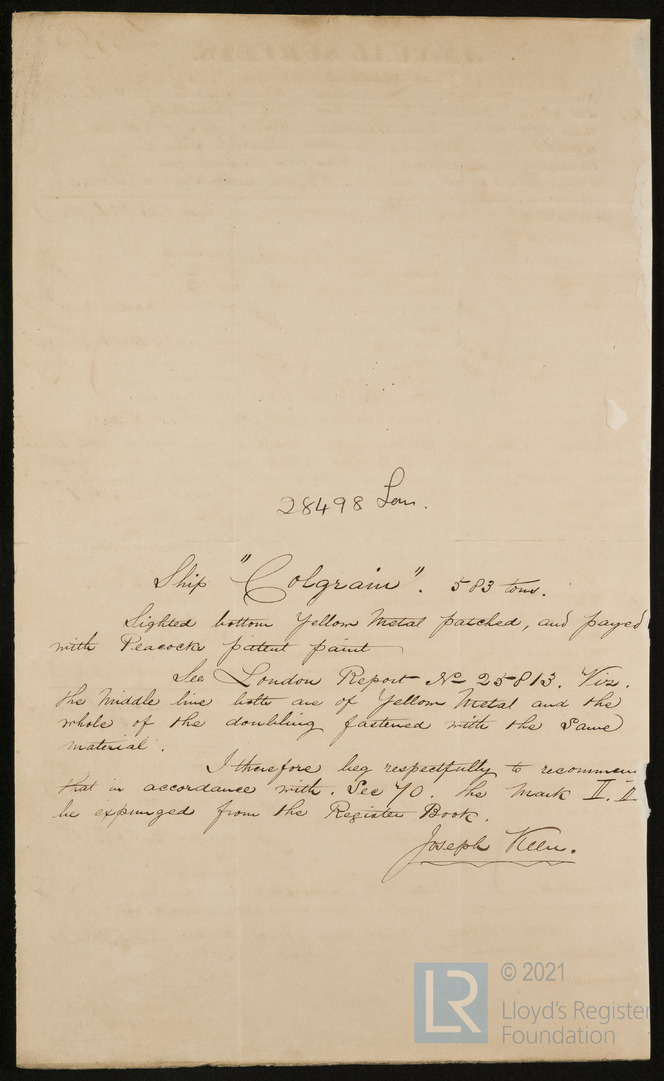 28498 Lon.
Ship "Colgrain". 583 tons.
Sighted bottom Yellow Metal patched, and payed
with Peacocks patent paint
See London Report No 25813. Viz.
the Middle line bolts are of Yellow Metal and the
whole of the doubling fastened with the Same
material.
I therefore beg respectfully to recommen
that in accordance with. Sec 70. the Mark II.
be expunged from the Register Book.
Joseph Keen.
LR
© 2021
Lloyd's Register
Foundation